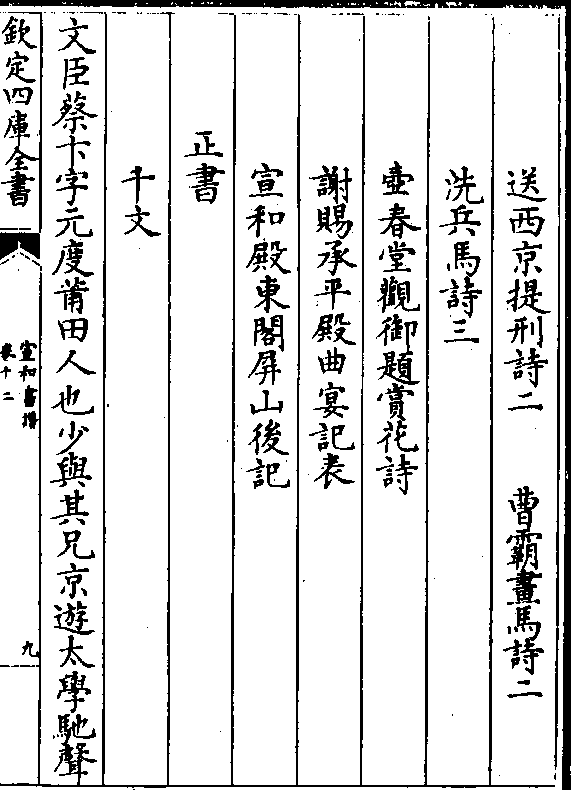 送西京提刑詩二　曹霸畫馬詩二
洗兵馬詩三
壺春堂觀御題賞花詩
謝賜承平殿曲宴記表
宣和殿東閣屏山後記
正書
千文
文臣蔡卞字元度莆田人也少與其兄京遊太學馳聲
欽定四庫全書
宣和書譜
卷十二
九